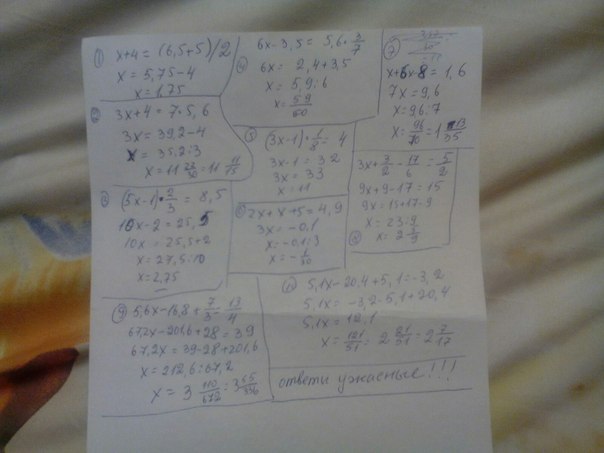 ① x+4 = (6,5+5)/2
x = 5,75-4
x = 1,75
② 3x+4 = 7·5,6
3x = 39,2-4
x = 35,2:3
x = 11 22/30 = 11 11/15
③ (5x-1)·2/3 = 8,5
10x-2 = 25,5
10x = 25,5+2
x = 27,5:10
x = 2,75
④ 6x-3,5 = 5,6·3/7
6x = 2,4+3,5
x = 5,9:6
x = 59/60
⑤ (3x-1)·1/8 = 4
3x-1 = 32
3x = 33
x = 11
⑥ 2x+x+5 = 4,9
3x = -0,1
x = -0,1:3
x = -1/30
⑦
x+6x-8 = 1,6
7x = 9,6
x = 9,6:7
x = 96/70 = 1 13/35
⑧ 3x+3/2-17/6 = 5/2
9x+9-17 = 15
9x = 15+17-9
x = 23:9
x = 2 5/9
⑨ 5,6x-16,8+7/3=13/4
67,2x-201,6+28 = 39
67,2x = 39-28+201,6
x = 212,6:67,2
x = 3 110/672 = 3 55/336
5,1x-20,4+5,1 = -3,2
5,1x = -3,2-5,1+20,4
5,1x = 12,1
x = 121/51 = 2 21/51 = 2 7/17
ответи ужасные!!!